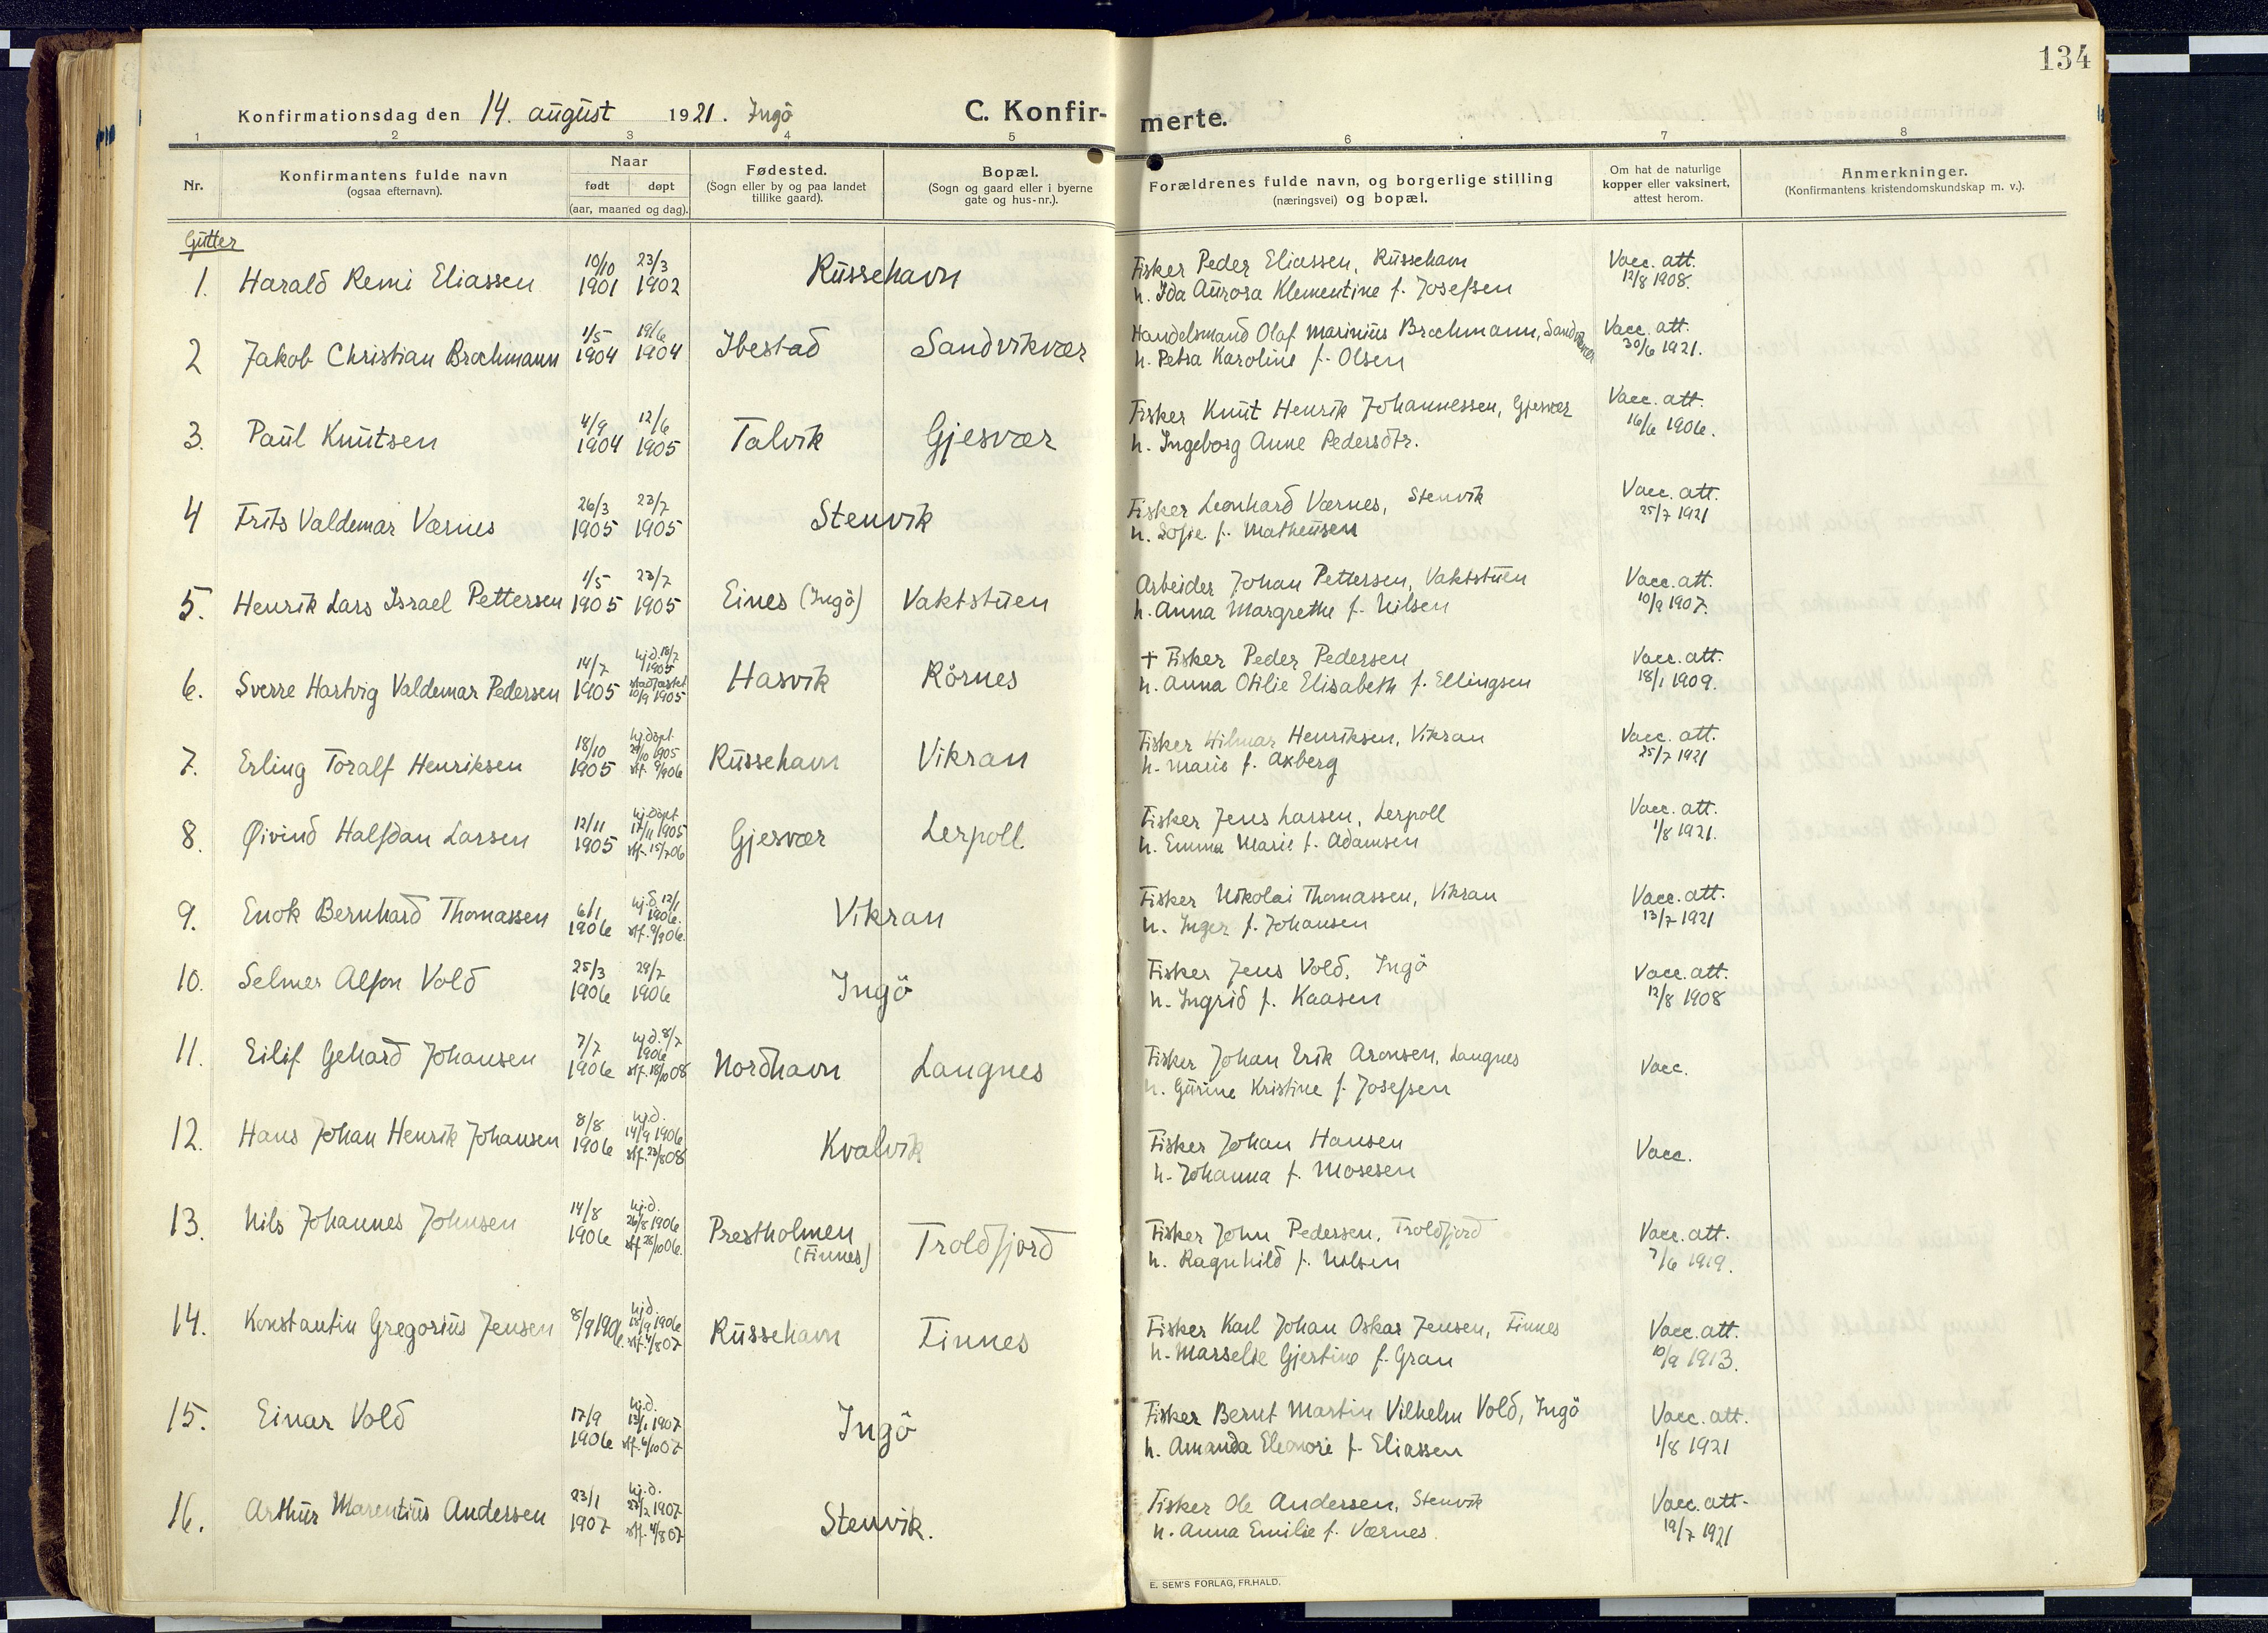 134
Konfirmationsdag den 14. august 1921. Ingö C. Konfir-merte.
1 2 3 4 5 6 7 8
Nr.
Konfirmantens fulde navn
(ogsaa efternavn).
Naar
født døpt
(aar, maaned og dag).
Fødested.
(Sogn eller by og paa landet
tillike gaard).
Bopæl.
(Sogn og gaard eller i byerne
gate og hus-nr.).
Forældrenes fulde navn, og borgerlige stilling
(næringsvei) og bopæl.
Om hat de naturlige
kopper eller vaksinert,
attest herom.
Anmerkninger.
(Konfirmantens kristendomskundskap m. v.).
Gutter
1. Harald Remi Eliassen 10/10 1901 23/3 1902 Russehavn
Fisker Peder Eliassen, Russehavn
h. Ida Aurora Klementine f. Josefsen
Vacc. att.
12/8 1908.
2 Jakob Christian Brochmann 1/5 1904 19/6 1904 Ibestad Sandvikvær
Handelsmand Olaf Marinius Brochmann, Sandvikvær
h. Petra Karoline f. Olsen
Vacc. att.
30/6 1921.
3. Paul Knutsen 4/9 1904 12/6 1905 Talvik Gjesvær
Fisker Knut Henrik Johannessen, Gjesvær
h. Ingeborg Anne Pedersdtr.
Vacc. att.
16/6 1906.
4 Frits Valdemar Værnes 26/3 1905 23/7 1905 Stenvik
Fisker Leonhard Værnes, Stenvik
h. Sofie f. Matheusen
Vacc. att.
25/7 1921
5. Henrik Lars Israel Pettersen 1/5 1905 23/7 1905 Eines (Ingö) Vaktstuen
Arbeider Johan Pettersen, Vaktstuen
h. Anna Margrethe f. Nilsen
Vacc. att.
10/9 1907.
6. Sverre Hartvig Valdemar Pedersen 14/7 1905 hj.d. 18/7 1905 stadfæstet 10/9 1905 Hasvik Rörnes
+ Fisker Peder Pedersen
h. Anna Otilie Elisabeth f. Ellingsen
Vacc. att.
18/1 1909.
7. Erling Toralf Henriksen 18/10 1905 hj.döpt 29/10 1905 stf. 9/906 Russehavn Vikran
Fisker Hilmar Henriksen, Vikran
h. Marie f. Axberg
Vacc. att.
25/7 1921
8. Øivind Halfdan Larsen 12/11 1905 hj.döpt 17/11 1905 stf. 15/706 Gjesvær Lerpoll
Fisker Jens Larsen, Lerpoll
h. Emma Marie f. Adamsen
Vacc. att.
1/8 1921.
9. Enok Bernhard Thomassen 6/1 1906 hj.d. 12/1 1906. stf. 9/906. Vikran
Fisker Nikolai Thomassen, Vikran
h. Inger f. Johansen
Vacc. att.
13/7 1921
10. Selmer Alfon Vold 25/3 1906 29/7 1906 Ingö
Fisker Jens Vold, Ingö
h. Ingrid f. Kaasen
Vacc. att.
12/8 1908
11. Eilif Gehard Johansen 7/7 1906 hj.d. 8/7 1906 stf. 18/1008 Nordhavn Langnes
Fisker Johan Erik Aronsen, Langnes
h. Gurine Kristine f. Josefsen
Vacc.
12. Hans Johan Henrik Johansen 8/8 1906 hj.d. 14/9 1906 stf. 23/808 Kvalvik
Fisker Johan Hansen
h. Johanna f. Mosesen
Vacc.
13. Nils Johannes Johnsen 14/8 1906 hj.d. 26/8 1906 stf. 28/1006. Prestholmen (Finnes) Troldfjord
Fisker John Pedersen, Troldfjord
h. Ragnhild f. Nilsen
Vacc. att.
7/6 1919.
14. Konstantin Gregorius Jensen 8/9 1906. hj.d. 15/9 1906 stf. 4/807 Russehavn Finnes
Fisker Karl Johan Oskar Jensen, Finnes
h. Marselie Gjertine f. Gran
Vacc. att.
10/9 1913.
15. Einar Vold 17/9 1906 hj.d. 13/1 1907 stf. 6/1007 Ingö
Fisker Bernt Martin Vilhelm Vold, Ingö
h. Amanda Eleonore f. Eliassen
Vacc. att.
1/8 1921
16. Arthur Marentius Andersen 23/1 1907 hj.d. 27/2 1907 stf. 4/807 Stenvik.
Fisker Ole Andersen, Stenvik
h. Anna Emilie f. Værnes
Vacc. att.
19/7 1921
E. SEM'S FORLAG, FR.HALD.